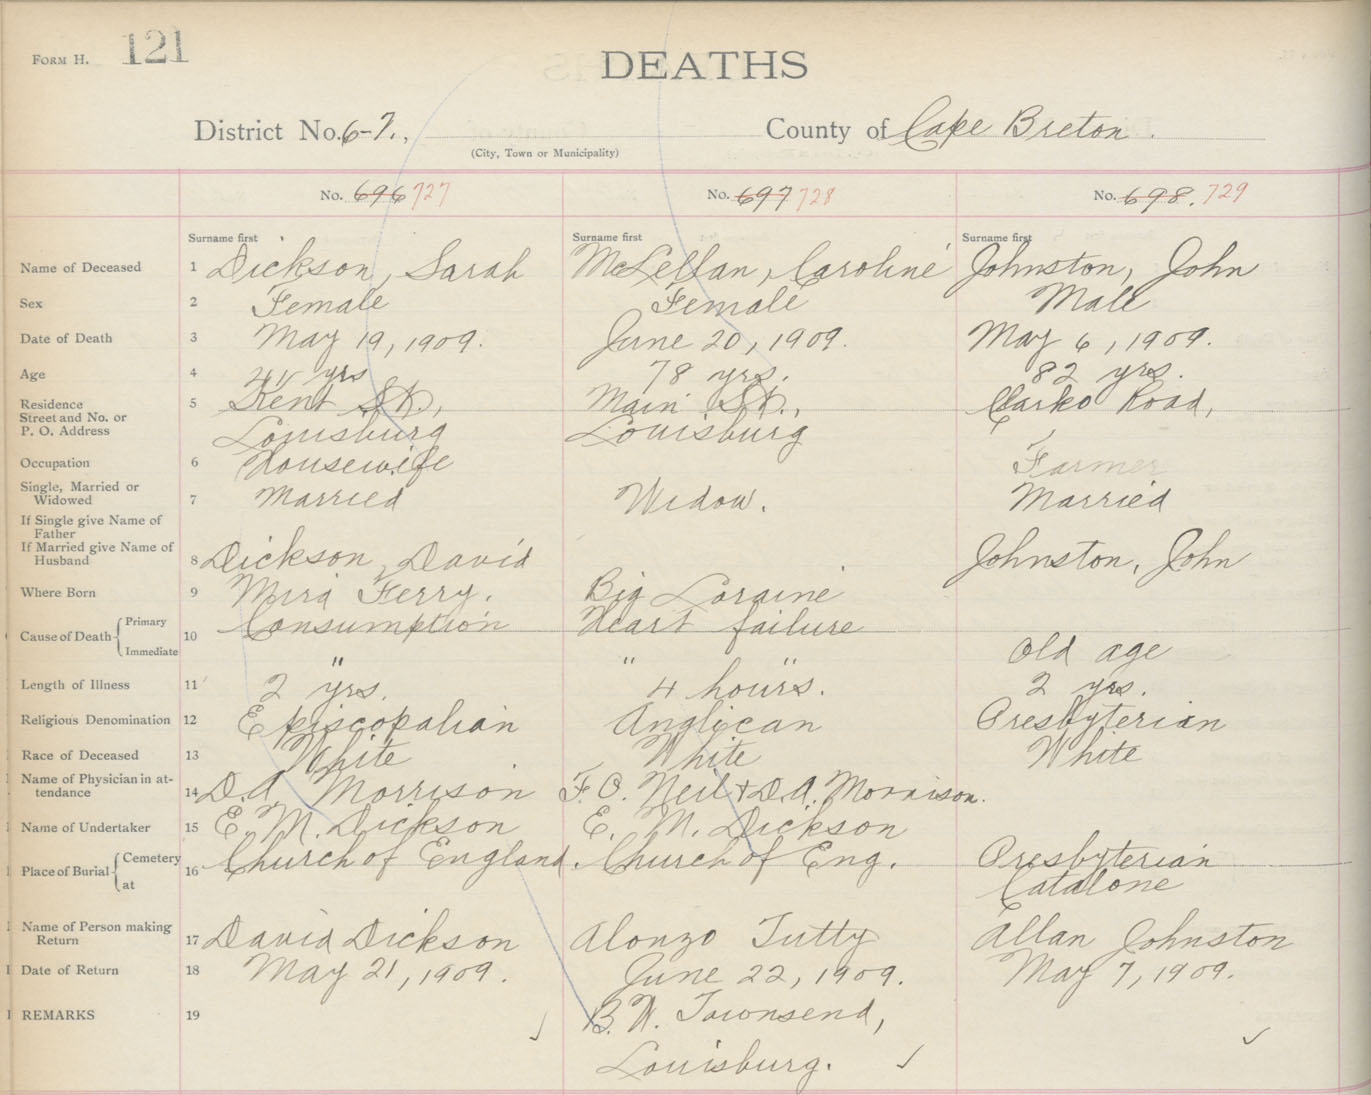 FORM H. 121
DEATHS
District No. 6-7., County of Cape Breton.
(City, Town or Municipality)
No. 696 727 No. 697 728 No. 698. 729
Surname first Surname first Surname first
Name of Deceased 1 Dickson, Sarah McLellan, Caroline Johnston, John
Sex 2 Female Female Male
Date of Death 3 May 19, 1909. June 20, 1909. May 6, 1909.
Age 4 yrs 78 yrs. 82 yrs.
Residence 5 Kent St., Main St., Road,
Street and No. or
P. O. Address Louisburg Louisburg
Occupation 6 Housewife Farmer
Single, Married or
Widowed 7 Married Widow. Married
If Single give Name of
Father
If Married give Name of
Husband 8 Dickson, David Johnston, John
Where Born 9 Mira Ferry. Big Loraine
Cause of Death Primary 10 Consumption Heart failure
Immediate " " " Old age
Length of Illness 11 2 yrs. 4 hours. 2 yrs.
Religious Denomination 12 Episcopalian Anglican Presbyterian
Race of Deceased 13 White White White
Name of Physician in at-
tendance 14 D.A. Morrison F.O. Neil & D.A. Morrison.
Name of Undertaker 15 E. M. Dickson E. M. Dickson
Place of Burial Cemetery 16 Church of England. Church of Eng. Presbyterian
at Catalone
Name of Person making
Return 17 David Dickson Alonzo Tutty Allan Johnston
Date of Return 18 May 21, 1909. June 22, 1909. May 7, 1909.
REMARKS 19 B.W. Townsend,
Louisburg.